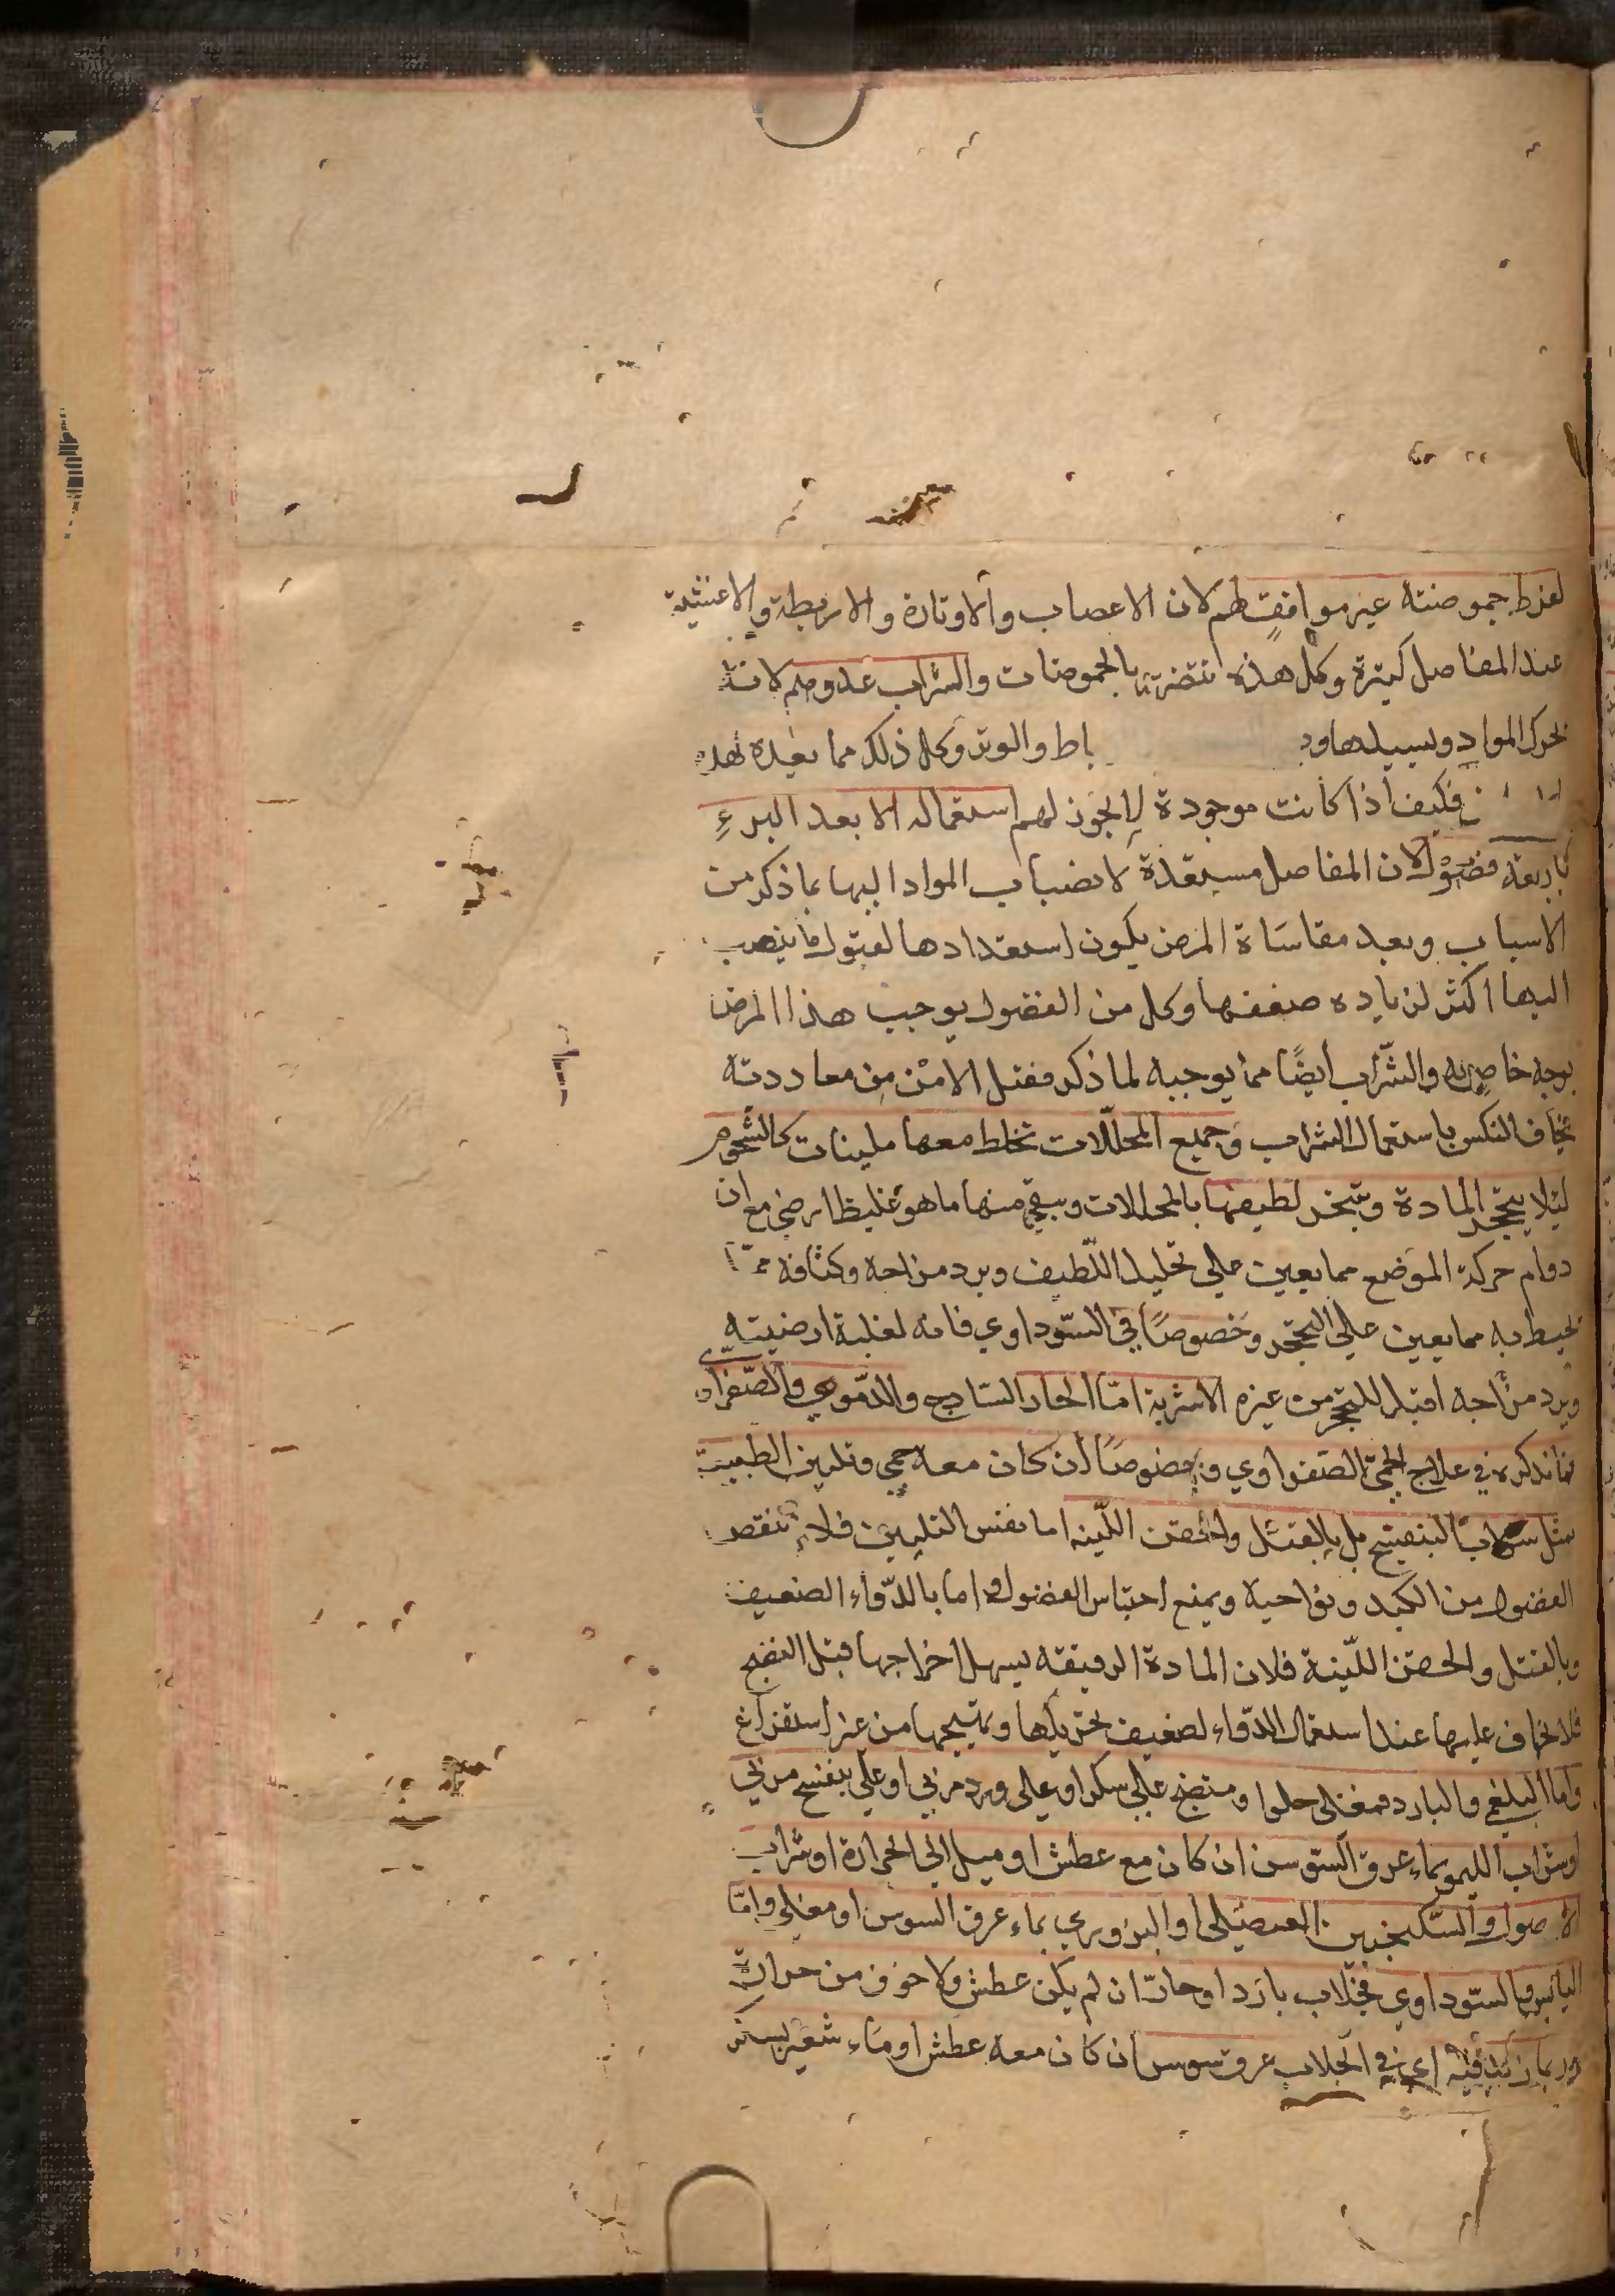 لفرط حموضته غير موافقة لهم لان الاعصاب والاوتارة والاربطة والاغشية
عند المفاصل كثيرة وكل هذه تتضرر بالحموضات والشراب عدو لهم لانه
يحرك المواد ويسيلها و باط والوتر وكل ذلك مما يعيده لهذه
فكيف اذا كانت موجودة لا يجوز لهم استعماله الا بعد البرء
باربعة فصول لان المفاصل مستعدة لانصباب المواد اليها بما ذكر من
الاسباب وبعد مقاساة المرض يكون استعدادها لقبول ما ينصب
اليها اكثر لزياده ضعفها وكل من الفضول يوجب هذا المرض
بوجه خاص به والشراب أيضًا مما يوجبه لما ذكر فقبل الامن من معاودته
يخاف النكس باستعمال الشراب وجميع المحللات تخلط معها ملينات كالشحوم
ليلا يتحجر المادة ويتبخر لطيفها بالمحللات ويبقى منها ما هو غليظ ارضي مع ان
دوام حركة الموضع مما يعين على تحليل اللطيف وبرد مزاجه وكثافة ما
يحيط به مما يعين على التحجر وخصوصًا في السوداوي فانه لغلبة ارضيته
وبرد مزاجه اقبل للتحجر من غيره الاشربة امّا الحار الساذج والدموي والصفراوي
فما نذكره في علاج الحمى الصفراوي وخصوصًا ان كان معه حمى وتليين الطبيعة
مثل شراب البنفسج بل بالفتل والحقن اللينه اما نفس التليين فلانه ينقص
الفضول من الكبد ونواحيه ويمنع احتباس الفضول واما بالدواء الضعيف
وبالفتل والحقن اللينة فلان المادة الرقيقه يسهل اخراجها قبل النضج
فلا يخاف عليها عند استعمال الدواء لضعيف تحريكها وتهييجها من غير استفراغ
واما البلغمي والبارد فمغلى حلوا ومنضج على سكر او على ورد مربي او على بنفسج مربي
او شراب الليمو بماء عرق السوس ان كان مع عطش او ميل الى الحرارة او شراب
الاصول والسكنجبين العنصيلى او البزوري بماء عرق السوس او مغلي وامّا
اليابس والسوداوي فجلاب بارد او حار ان لم يكن عطش ولا خوف من حرارة
وربما زيد فيه اي في الجلاب عرق سوس ان كان معه عطش او ماء شعير بسكر